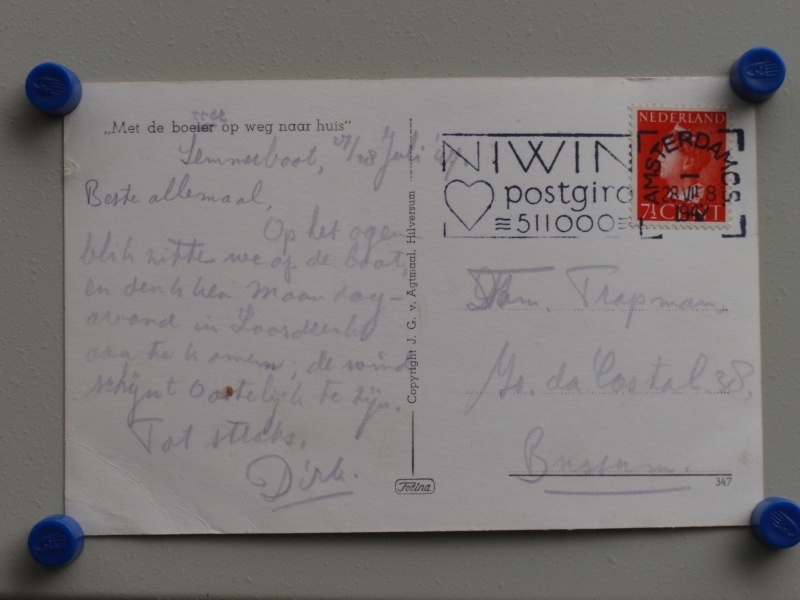 „Met de boeier op weg naar huis”
Lemmerboot, 27/28 Juli '47
Beste allemaal,
Op het ogen-
blik zitten we op de boot,
en denken Maandag-
avond in Loosdrecht
aan te komen; de wind
schijnt Oostelijk te zijn.
Tot straks.
Dirk.
Copyright J. G. v. Agtmaal, Hilversum
Fotina
NIWIN
postgiro
511000
AMSTERDAM CS
28 VII 8
1947
NEDERLAND
7½ CENT
Fam. Trapman,
Is. da Costal 38,
Bussum.
347